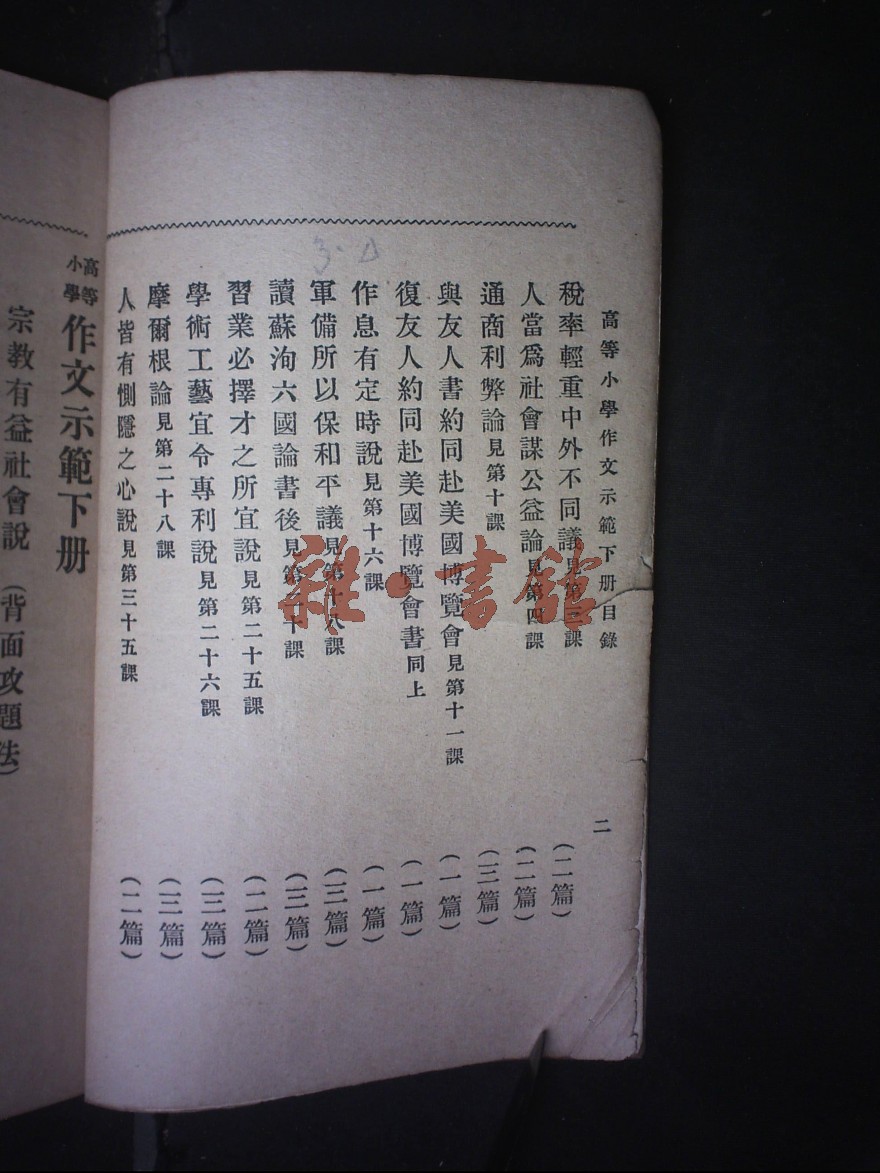 高等小學作文示範下册目錄 二
稅率輕重中外不同議見第三課 (二篇)
人當爲社會謀公益論見第四課 (二篇)
通商利弊論見第十課 (三篇)
與友人書約同赴美國博覽會見第十一課 (一篇)
復友人約同赴美國博覽會書同上 (一篇)
作息有定時說見第十六課 (一篇)
軍備所以保和平議見第十八課 (三篇)
讀蘇洵六國論書後見第二十課 (三篇)
習業必擇才之所宜說見第二十五課 (二篇)
學術工藝宜令專利說見第二十六課 (三篇)
摩爾根論見第二十八課 (三篇)
人皆有惻隱之心說見第三十五課 (二篇)
高等小學作文示範下册
宗教有益社會說 (背面攻題法)
雜·書館
3.